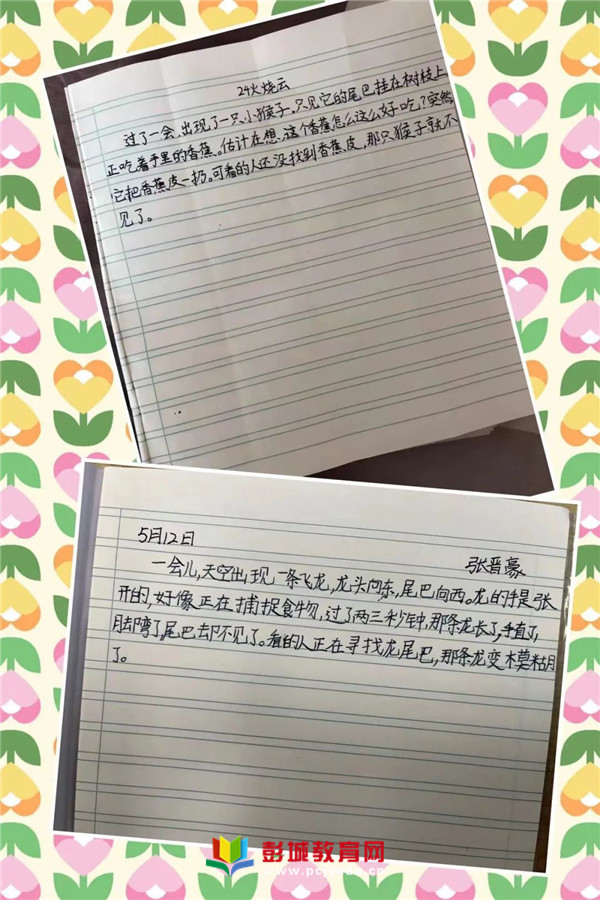 24火烧云
过了一会,出现了一只小猴子,只见它的尾巴挂在树枝上
正吃着手里的香蕉。估计在想,这个香蕉怎么这么好吃?突然
它把香蕉皮一扔。可看的人还没找到香蕉皮,那只猴子就不
见了。
5月12日
张晋豪
一会儿,天空出现一条飞龙,龙头向东,尾巴向西。龙的手是张
开的,好像正在捕捉食物,过了两三秒钟,那条龙长了,手直了,
腿弯了,尾巴却不见了。看的人正在寻找龙尾巴,那条龙变模糊
了。
彭城教育网